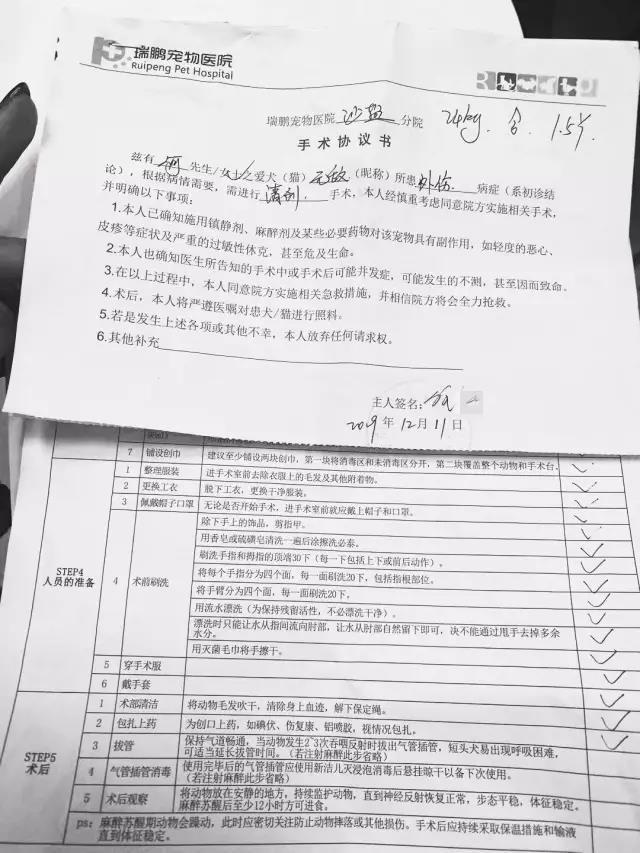 瑞鹏宠物医院
Ruipeng Pet Hospital
瑞鹏宠物医院 沙盐 分院 24kg. 1.5Y.
手术协议书
兹有 先生/女士之爱犬（猫）无敌（昵称）所患 外伤 病症（系初诊结
论），根据病情需要，需进行 清创 手术，本人经慎重考虑同意院方实施相关手术，
并明确以下事项：
1.本人已确知施用镇静剂、麻醉剂及某些必要药物对该宠物具有副作用，如轻度的恶心、
皮疹等症状及严重的过敏性休克，甚至危及生命。
2.本人也确知医生所告知的手术中或手术后可能并发症，可能发生的不测，甚至因而致命。
3.在以上过程中，本人同意院方实施相关急救措施，并相信院方将会全力抢救。
4.术后，本人将严遵医嘱对患犬/猫进行照料。
5.若是发生上述各项或其他不幸，本人放弃任何请求权。
6.其他补充
主人签名：
2019年12月11日
7 铺设创巾 建议至少铺设两块创巾，第一块将消毒区和未消毒区分开，第二块覆盖整个动物和手术台。
STEP4
人员的准备
1 整理服装 进手术室前去除衣服上的毛发及其他附着物。
2 更换工衣 脱下工衣，更换干净服装。
3 佩戴帽子口罩 无论是否开始手术，进手术室前就应戴上帽子和口罩。
4 术前刷洗 除下手上的饰品，剪指甲。
用香皂或硫磺皂清洗一遍后涂擦洗必泰。
刷洗手指和拇指的顶端30下（每一下包括上下或前后动作）。
将每个手指分为四个面，每一面刷洗20下，包括指根部位。
将手臂分为四个面，每一面刷洗20下。
用流水漂洗（为保持残留活性，不必漂洗干净）。
漂洗时只能让水从指间流向肘部，让水从肘部自然留下即可，决不能通过甩手去掉多余
水分。
用灭菌毛巾将手擦干。
5 穿手术服
6 戴手套
STEP5
术后
1 术部清洁 将动物毛发吹干，清除身上血迹，解下保定绳。
2 包扎上药 为创口上药，如碘伏、伤复康、铝喷胶，视情况包扎。
3 拔管 保持气道畅通，当动物发生2~3次吞咽反射时拔出气管插管，短头犬易出现呼吸困难，
可适当延长拔管时间。（若注射麻醉此步省略）
4 气管插管消毒 使用完毕后的气管插管应使用新洁儿灭浸泡消毒后悬挂晾干以备下次使用。
（若注射麻醉此步省略）
5 术后观察 将动物放在安静的地方，持续监护动物，直到神经反射恢复正常，步态平稳，体征稳定。
麻醉苏醒后至少12小时方可进食。
ps：麻醉苏醒期动物会躁动，此时应密切关注防止动物摔落或其他损伤。手术后应持续采取保温措施和输液
直到体征稳定。